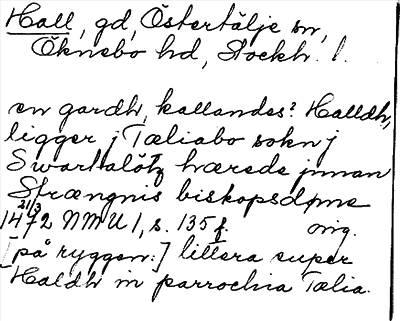 Hall, gd, Östertälje sn,
Öknebo hd, Stockh. l.
en gardh, kallandes? Halldh,
ligger j Tæliabo sokn j
Swartalötz hærede jnnan
Strængnis biskopsdøme
21/3
1472 NMU 1, s. 135 f. orig.
[på ryggen:] littera super
Haldh in parrochia Tælia.